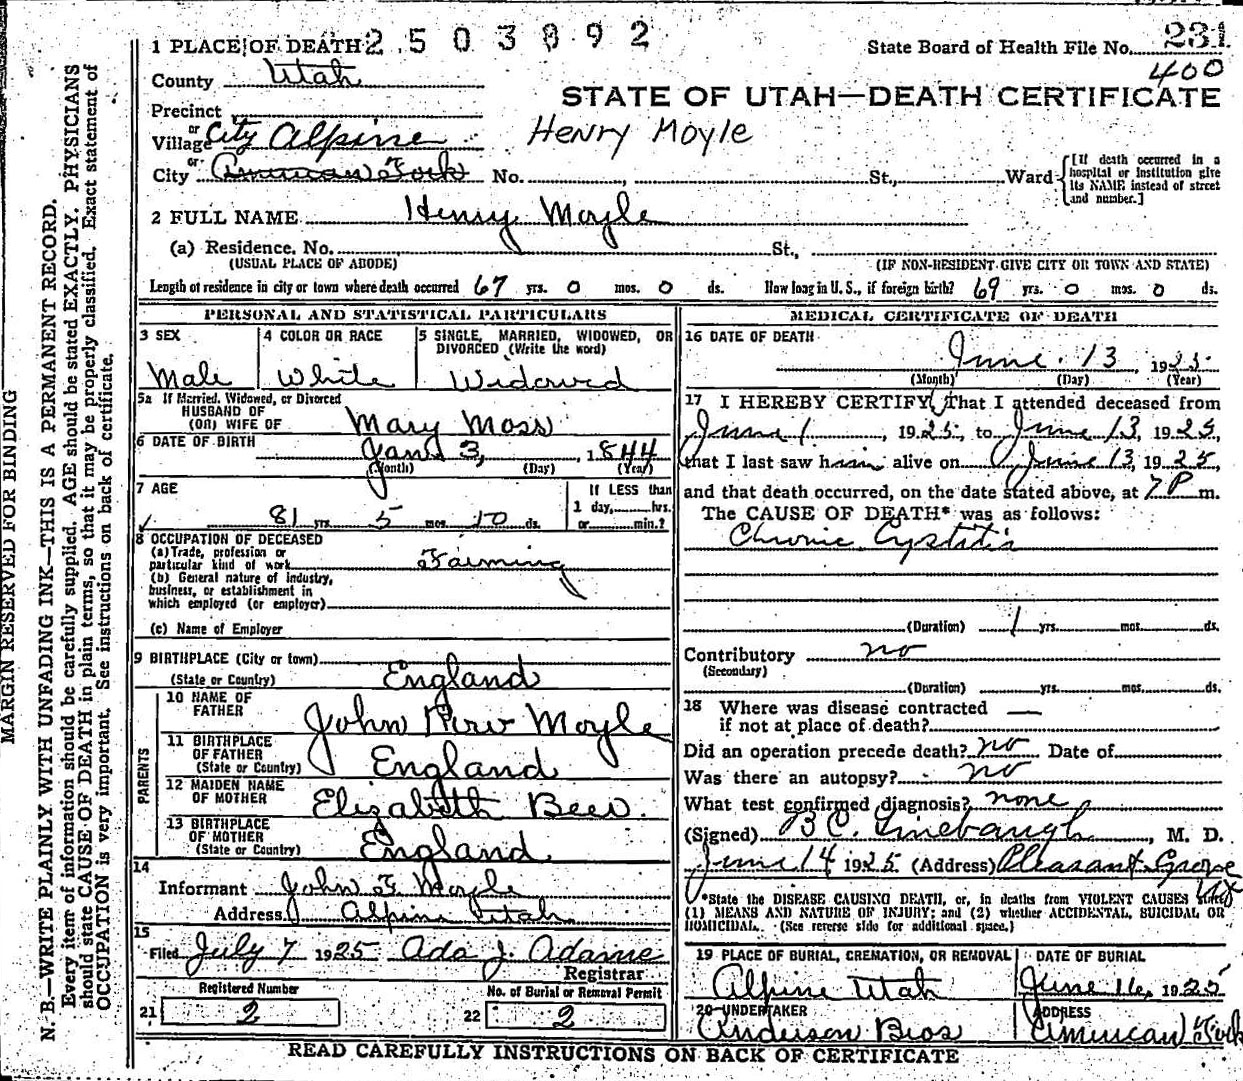 1 PLACE OF DEATH 2503892
State Board of Health File No. 231
400
County Utah
STATE OF UTAH—DEATH CERTIFICATE
Precinct
or
Village City Alpine
Henry Moyle
or
City American Fork No. , St., Ward
[If death occurred in a hospital or institution give its NAME instead of street and number.]
2 FULL NAME Henry Moyle
(a) Residence, No. St.,
(USUAL PLACE OF ABODE) (IF NON-RESIDENT GIVE CITY OR TOWN AND STATE)
Length of residence in city or town where death occurred 67 yrs. 0 mos. 0 ds. How long in U. S., if foreign birth? 69 yrs. 0 mos. 0 ds.
PERSONAL AND STATISTICAL PARTICULARS
3 SEX
Male
4 COLOR OR RACE
White
5 SINGLE, MARRIED, WIDOWED, OR
DIVORCED (Write the word)
Widowed
5a If Married, Widowed, or Divorced
HUSBAND OF
(OR) WIFE OF Mary Moss
6 DATE OF BIRTH Jan 3, , 1844
(Month) (Day) (Year)
7 AGE
81 yrs. 5 mos. 10 ds.
If LESS than
1 day, hrs.
or min.?
8 OCCUPATION OF DECEASED
(a) Trade, profession or
particular kind of work Farming
(b) General nature of industry,
business, or establishment in
which employed (or employer)
(c) Name of Employer
9 BIRTHPLACE (City or town)
(State or Country) England
PARENTS
10 NAME OF
FATHER John Rew Moyle
11 BIRTHPLACE
OF FATHER
(State or Country) England
12 MAIDEN NAME
OF MOTHER Elizabeth Beer.
13 BIRTHPLACE
OF MOTHER
(State or Country) England
14
Informant John F Moyle
Address Alpine Utah
15
Filed July 7 1925 Ada J. Adams
Registrar
Registered Number
21 2
No. of Burial or Removal Permit
22 2
MEDICAL CERTIFICATE OF DEATH
16 DATE OF DEATH
June 13 1925
(Month) (Day) (Year)
17 I HEREBY CERTIFY, That I attended deceased from
June 1 , 1925, to June 13, 1925,
that I last saw him alive on June 13, 1925,
and that death occurred, on the date stated above, at 7 P m.
The CAUSE OF DEATH* was as follows:
Chronic Cystitis
(Duration) 1 yrs. mos. ds.
Contributory no
(Secondary)
(Duration) yrs. mos. ds.
18 Where was disease contracted —
if not at place of death?
Did an operation precede death? no Date of
Was there an autopsy? no
What test confirmed diagnosis? none
(Signed) B C. Linebaugh , M. D.
June 14 1925 (Address) Pleasant Grove
Ut
*State the DISEASE CAUSING DEATH, or, in deaths from VIOLENT CAUSES state
(1) MEANS AND NATURE OF INJURY; and (2) whether ACCIDENTAL, SUICIDAL OR
HOMICIDAL. (See reverse side for additional space.)
19 PLACE OF BURIAL, CREMATION, OR REMOVAL
Alpine Utah
DATE OF BURIAL
June 16, 1925
20 UNDERTAKER
Anderson Bros
ADDRESS
American Fork
READ CAREFULLY INSTRUCTIONS ON BACK OF CERTIFICATE
MARGIN RESERVED FOR BINDING
N. B.—WRITE PLAINLY WITH UNFADING INK—THIS IS A PERMANENT RECORD.
Every item of information should be carefully supplied. AGE should be stated EXACTLY. PHYSICIANS
should state CAUSE OF DEATH in plain terms, so that it may be properly classified. Exact statement of
OCCUPATION is very important. See instructions on back of certificate.